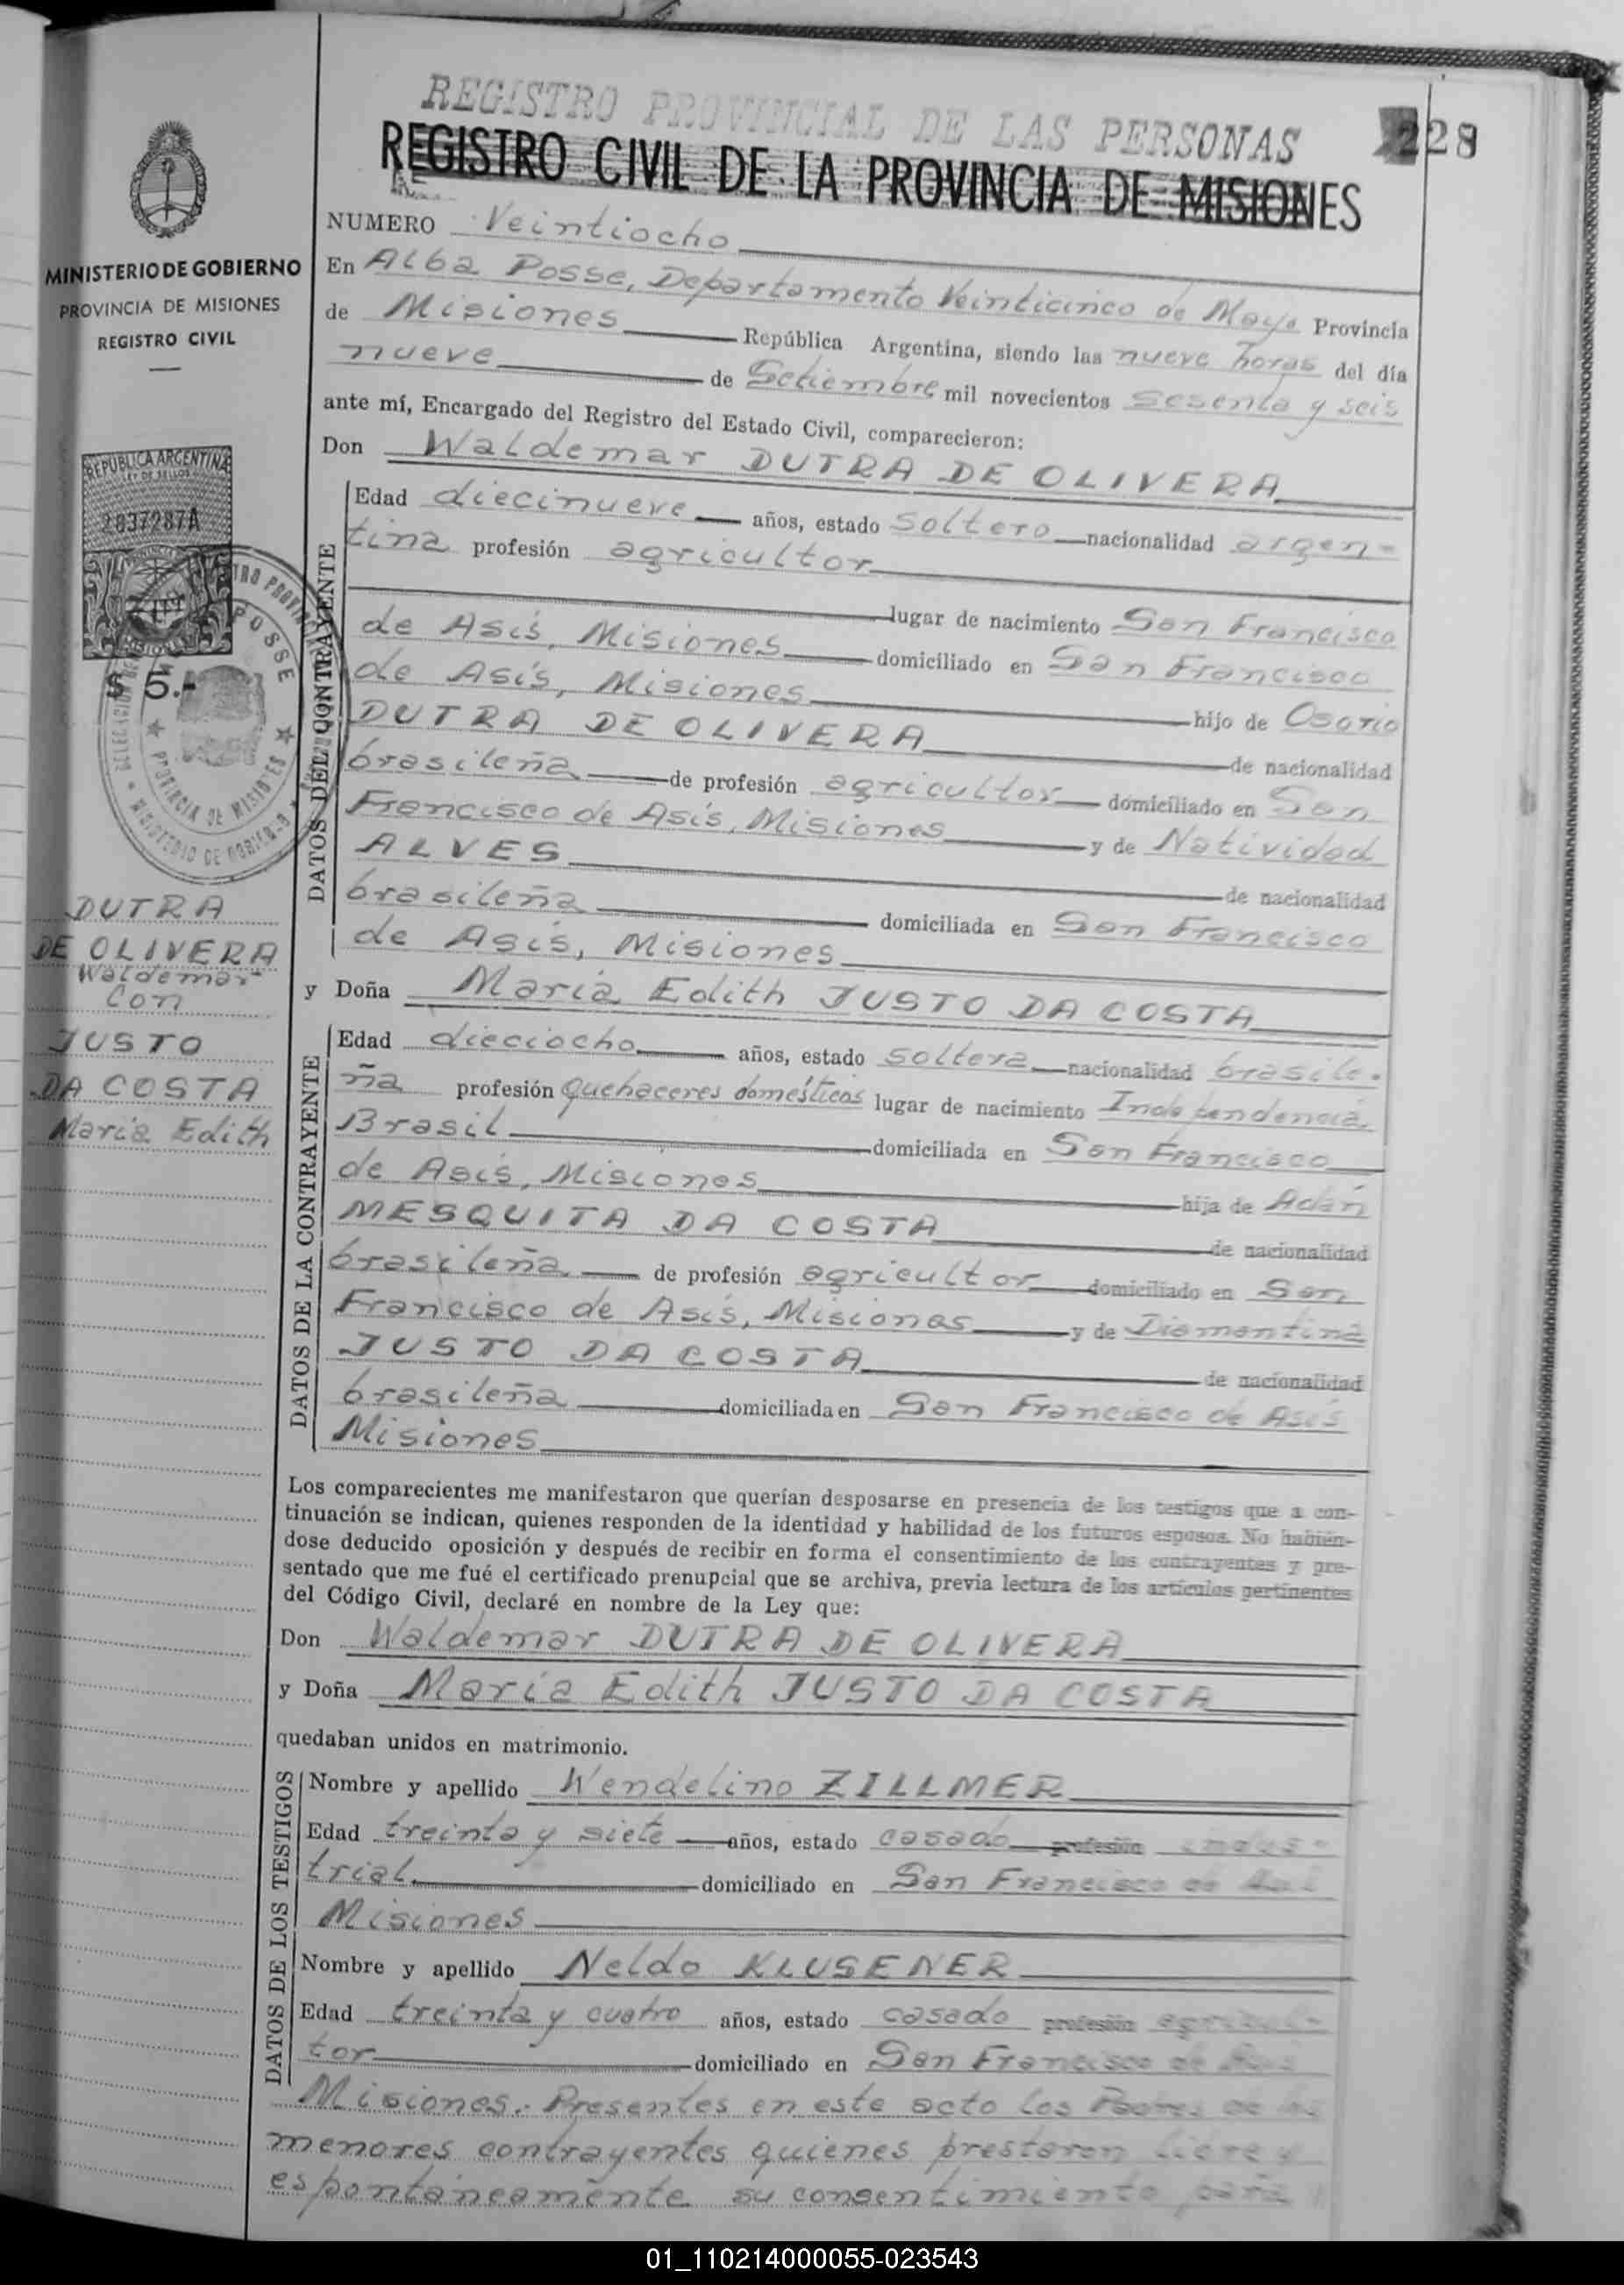 REGISTRO PROVINCIAL DE LAS PERSONAS
228
REGISTRO CIVIL DE LA PROVINCIA DE MISIONES
MINISTERIO DE GOBIERNO
PROVINCIA DE MISIONES
REGISTRO CIVIL
REPUBLICA ARGENTINA
LEY DE SELLOS
2837287A
MISIONES
$ 5.-
POSSE
PROVINCIA DE MISIONES
MINISTERIO DE GOBIERNO
DUTRA
DE OLIVERA
Waldemar
Con
JUSTO
DA COSTA
María Edith
NUMERO Veintiocho
En Alba Posse, Departamento Veinticinco de Mayo Provincia
de Misiones República Argentina, siendo las nueve horas del día
nueve de Setiembre mil novecientos sesenta y seis
ante mí, Encargado del Registro del Estado Civil, comparecieron:
Don Waldemar DUTRA DE OLIVERA
DATOS DEL CONTRAYENTE
Edad diecinueve años, estado soltero nacionalidad argen-
tina profesión agricultor
lugar de nacimiento San Francisco
de Asís, Misiones domiciliado en San Francisco
de Asís, Misiones hijo de Osorio
DUTRA DE OLIVERA de nacionalidad
brasileña de profesión agricultor domiciliado en San
Francisco de Asís, Misiones y de Natividad
ALVES de nacionalidad
brasileña domiciliada en San Francisco
de Asís, Misiones
y Doña María Edith JUSTO DA COSTA
DATOS DE LA CONTRAYENTE
Edad dieciocho años, estado soltera nacionalidad brasile-
ña profesión quehaceres domésticos lugar de nacimiento Independencia
Brasil domiciliada en San Francisco
de Asís, Misiones hija de Adán
MESQUITA DA COSTA de nacionalidad
brasileña de profesión agricultor domiciliado en San
Francisco de Asís, Misiones y de Diamantina
JUSTO DA COSTA de nacionalidad
brasileña domiciliada en San Francisco de Asís
Misiones
Los comparecientes me manifestaron que querían desposarse en presencia de los testigos que a con-
tinuación se indican, quienes responden de la identidad y habilidad de los futuros esposos. No habién-
dose deducido oposición y después de recibir en forma el consentimiento de los contrayentes y pre-
sentado que me fué el certificado prenupcial que se archiva, previa lectura de los artículos pertinentes
del Código Civil, declaré en nombre de la Ley que:
Don Waldemar DUTRA DE OLIVERA
y Doña María Edith JUSTO DA COSTA
quedaban unidos en matrimonio.
DATOS DE LOS TESTIGOS
Nombre y apellido Wendelino ZILLMER
Edad treinta y siete años, estado casado profesión indus-
trial domiciliado en San Francisco de Asís
Misiones
Nombre y apellido Neldo KLUSENER
Edad treinta y cuatro años, estado casado profesión agricul-
tor domiciliado en San Francisco de Asís
Misiones.- Presentes en este acto los Padres de los
menores contrayentes quienes prestaron libre y
espontáneamente su consentimiento para
01_110214000055-023543